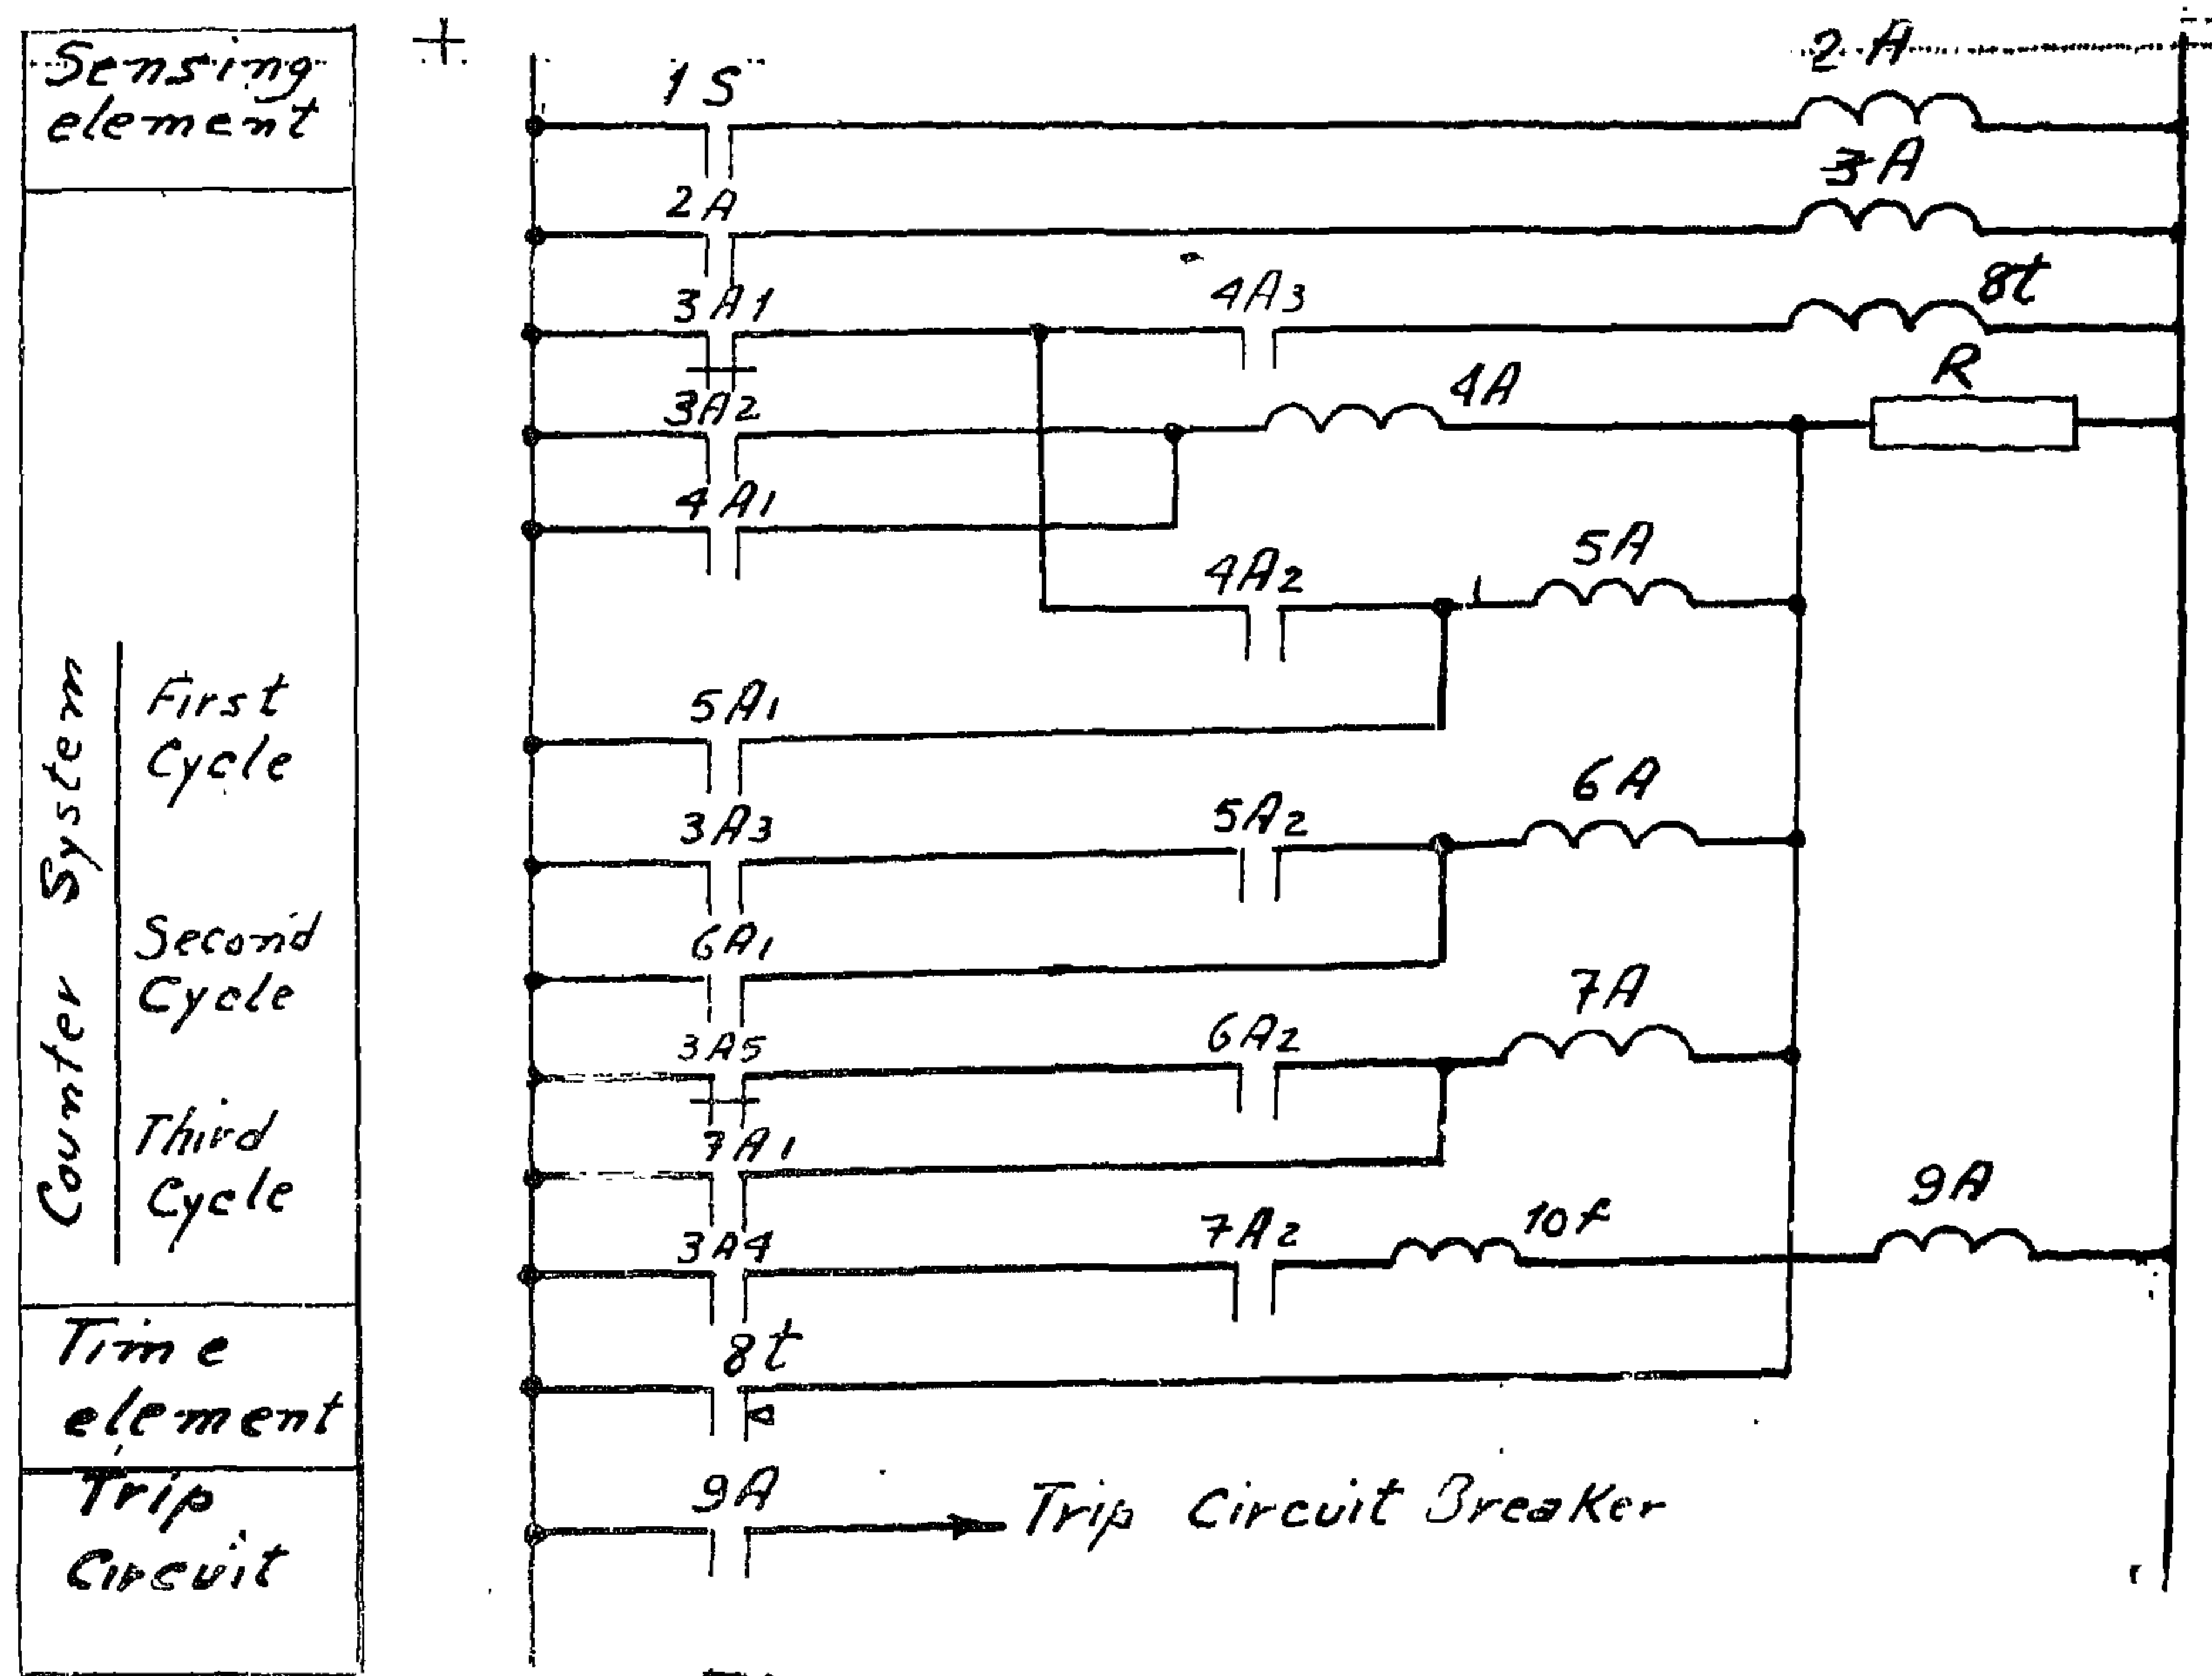 Sensing
element
Counter System
First
Cycle
Second
Cycle
Third
Cycle
Time
element
Trip
Circuit
+
1S
2A
2A
3A
3A1
4A3
8t
3A2
4A
R
4A1
4A2
5A
5A1
3A3
5A2
6A
6A1
3A5
6A2
7A
7A1
3A4
7A2
10f
9A
8t
9A
Trip Circuit Breaker